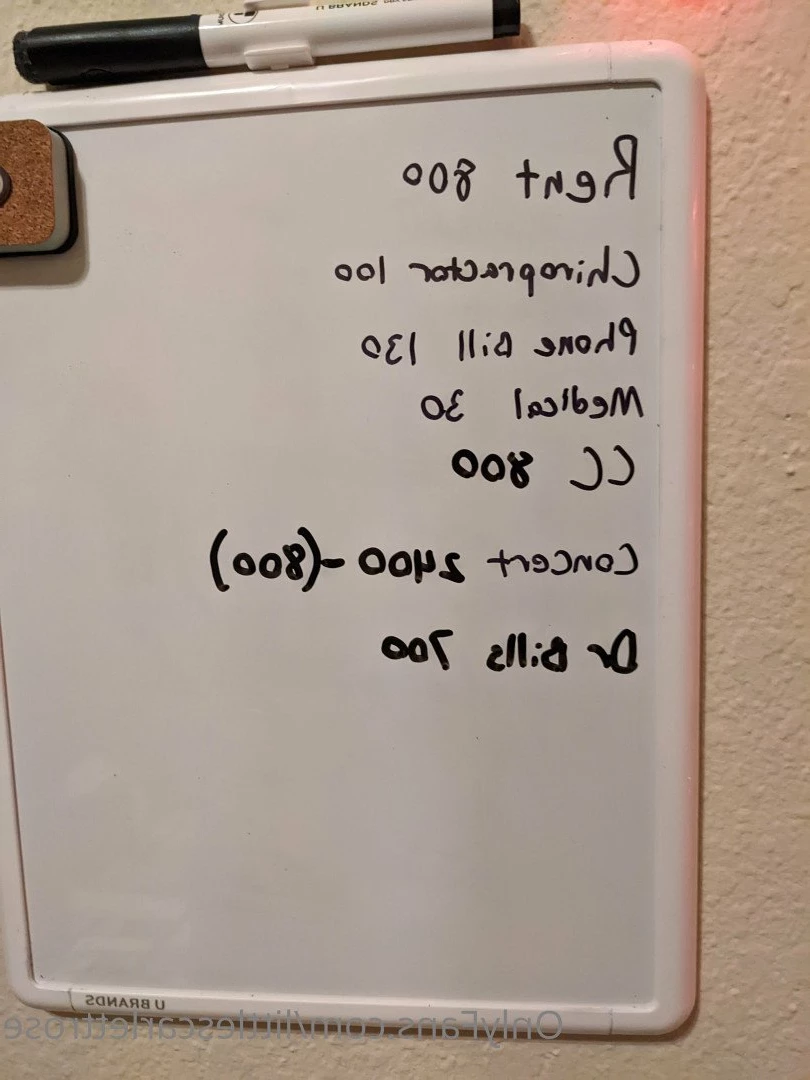 Rent 800
Chiropractor 100
Phone Bill 130
Medical 30
CC 800
Concert 2400-(800)
Dr Bills 700
U BRANDS
OnlyFans.com/littlescarlettrose